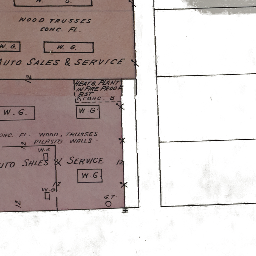 W. G.
WOOD TRUSSES
CONC. FL.
W. G.
W. G.
AUTO SALES & SERVICE
12
HEAT'G PLANT
IN FIRE PROOF
B'S'T
CONC. B
W. G.
W. G.
CONC. FL. WOOD TRUSSES
PILAS'D WALLS
W. G.
AUTO SALES & SERVICE
W. G.
W. G.
12
G.T.